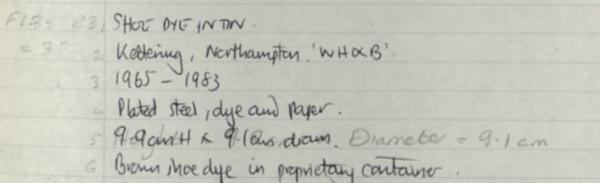 SHOE DYE IN TIN.
2 Kettering, Northampton. 'WH&B'
3 1965 - 1983
4 Plated steel, dye and paper.
5 9.9cm H x 9.1cms diam. Diameter = 9.1 cm
6 Brown shoe dye in proprietary container.